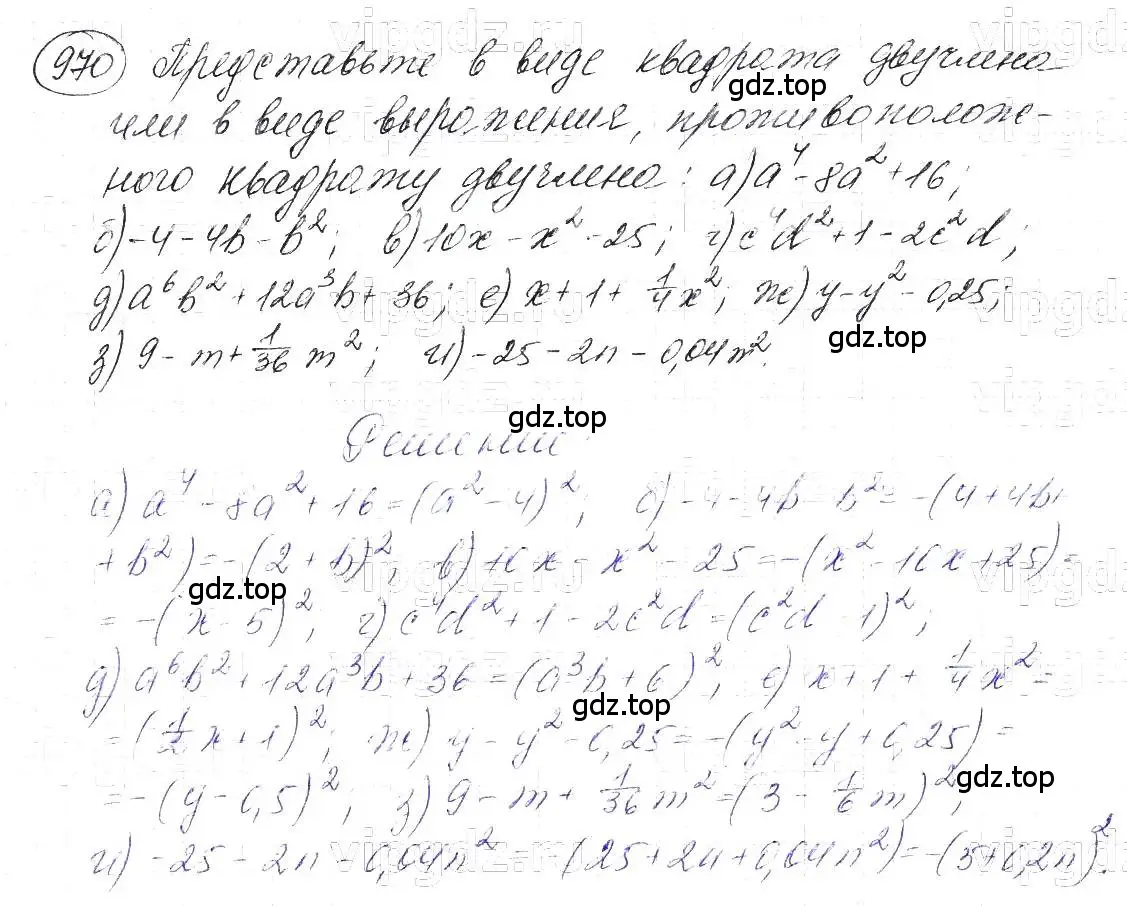 970 Представьте в виде квадрата двучлена
или в виде выражения, противополож-
ного квадрату двучлена: а) a⁴ - 8a² + 16;
б) -4 - 4b - b²; в) 10x - x² - 25; г) c⁴d² + 1 - 2c²d;
д) a⁶b² + 12a³b + 36; е) x + 1 + 1/4 x²; ж) y - y² - 0,25;
з) 9 - m + 1/36 m²; и) -25 - 2n - 0,04n².
Решение
а) a⁴ - 8a² + 16 = (a² - 4)²; б) -4 - 4b - b² = -(4 + 4b +
+ b²) = -(2 + b)²; в) 10x - x² - 25 = -(x² - 10x + 25) =
= -(x - 5)²; г) c⁴d² + 1 - 2c²d = (c²d - 1)²;
д) a⁶b² + 12a³b + 36 = (a³b + 6)²; е) x + 1 + 1/4 x² =
= (1/2 x + 1)²; ж) y - y² - 0,25 = -(y² - y + 0,25) =
= -(y - 0,5)²; з) 9 - m + 1/36 m² = (3 - 1/6 m)²;
и) -25 - 2n - 0,04n² = -(25 + 2n + 0,04n²) = -(5 + 0,2n)².
gdz.top
gdz.top
gdz.top
gdz.top
gdz.top
gdz.top
vipgdz.ru
vipgdz.ru
vipgdz.ru
vipgdz.ru